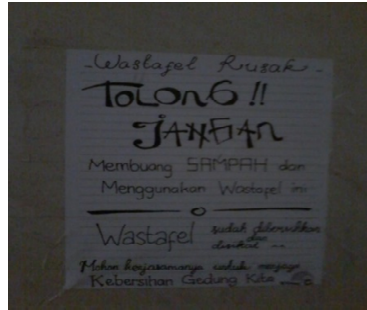 - Wastafel Rusak -
TOLONG !!
JANGAN
Membuang SAMPAH dan
Menggunakan Wastafel ini
Wastafel sudah dibersihkan
dan
disikat
Mohon kerjasamanya untuk menjaga
Kebersihan Gedung Kita